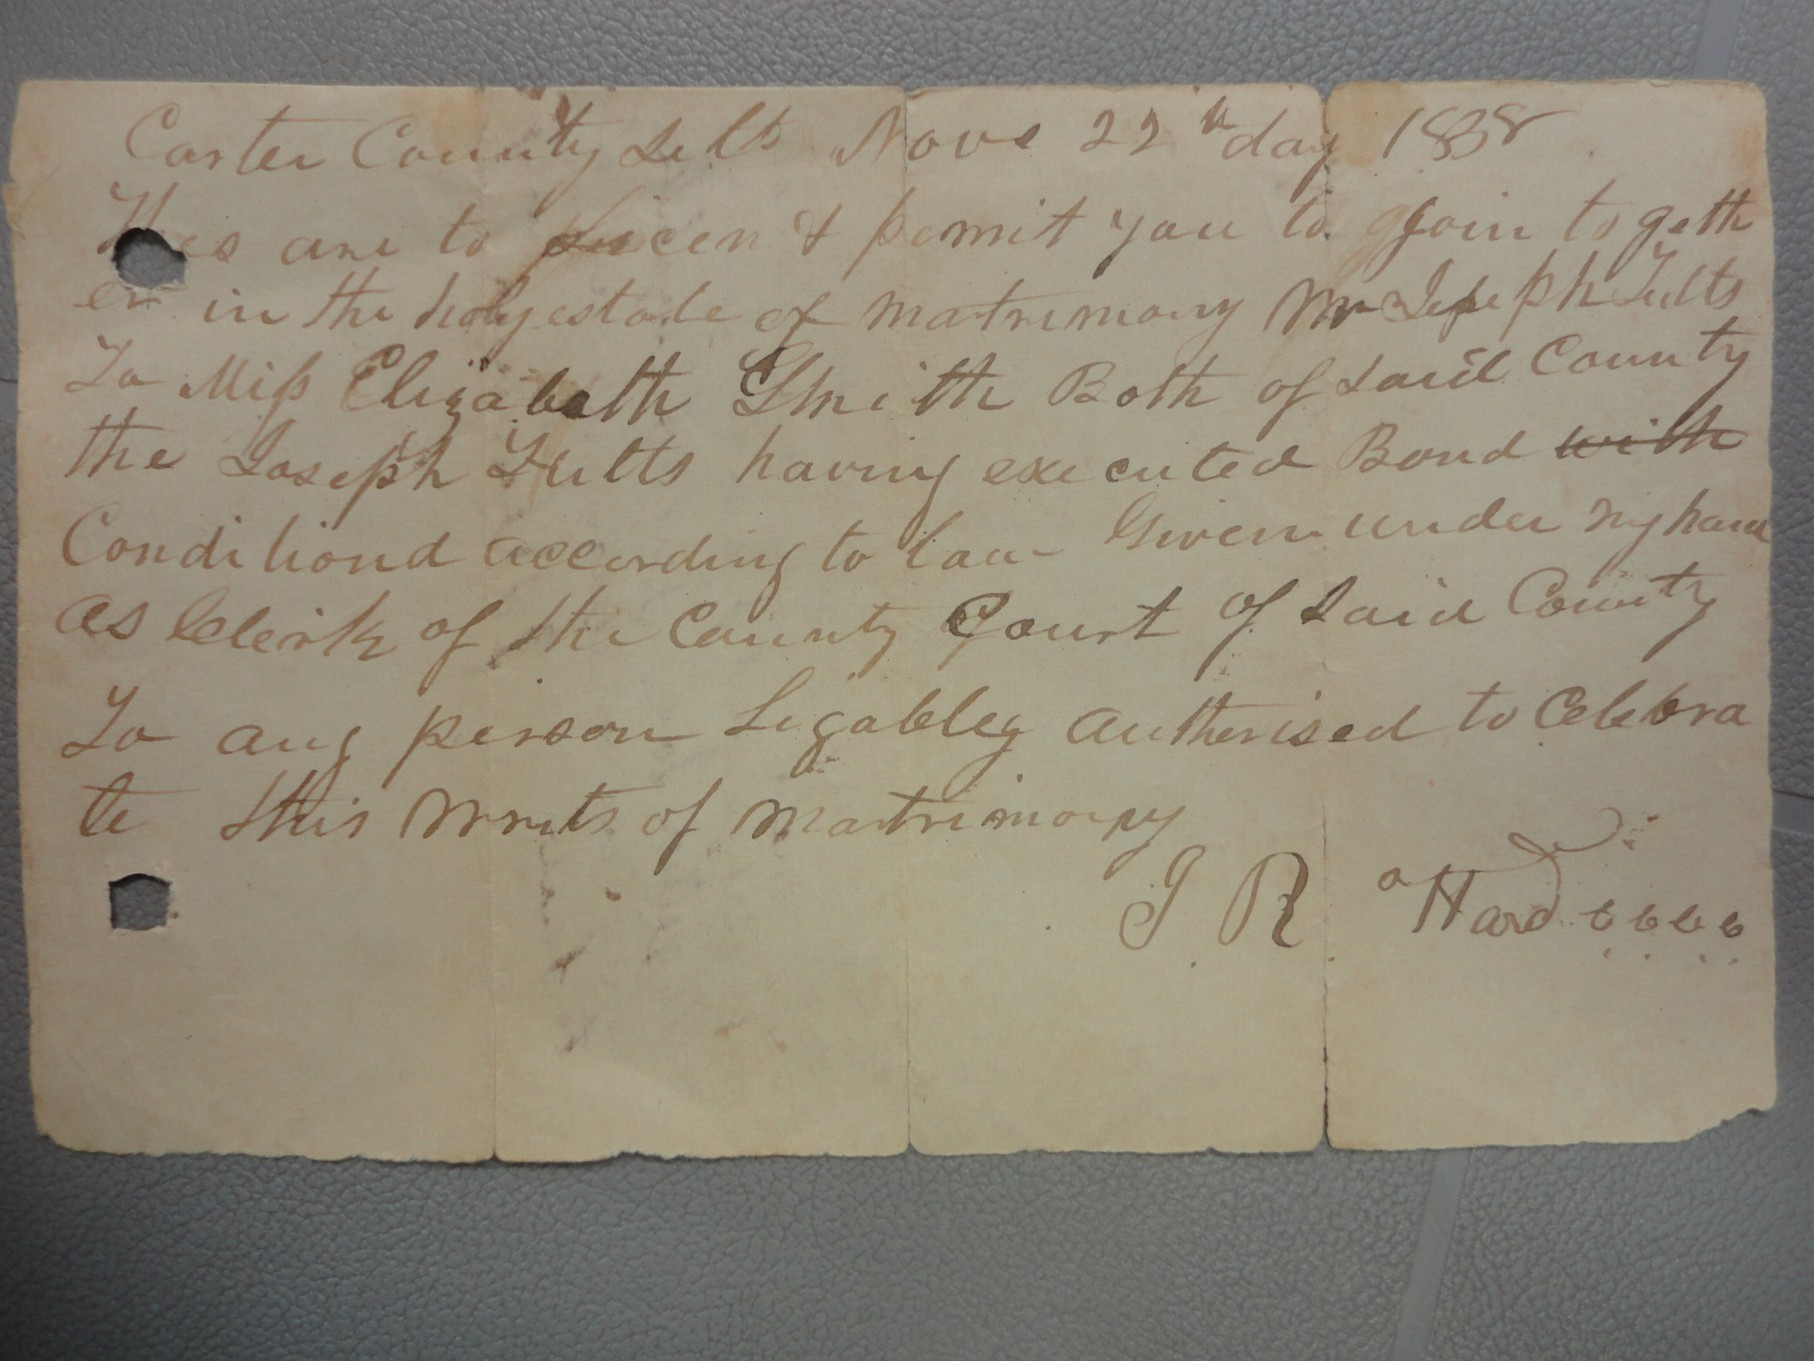 Carter County Sct Nove 22th day 1838
Thes are to Licen & permit you to Join togeth
er in the holy estate of matrimony Mr Joseph Fults
To Miss Elizabeth Smith Both of said County
the Joseph Fults having executed Bond with
Conditiond according to law Given under my hand
as Clerk of the County Court of said County
To any person Ligabley Autherised to Celebra
te this Wrrits of matrimony
J R Ward